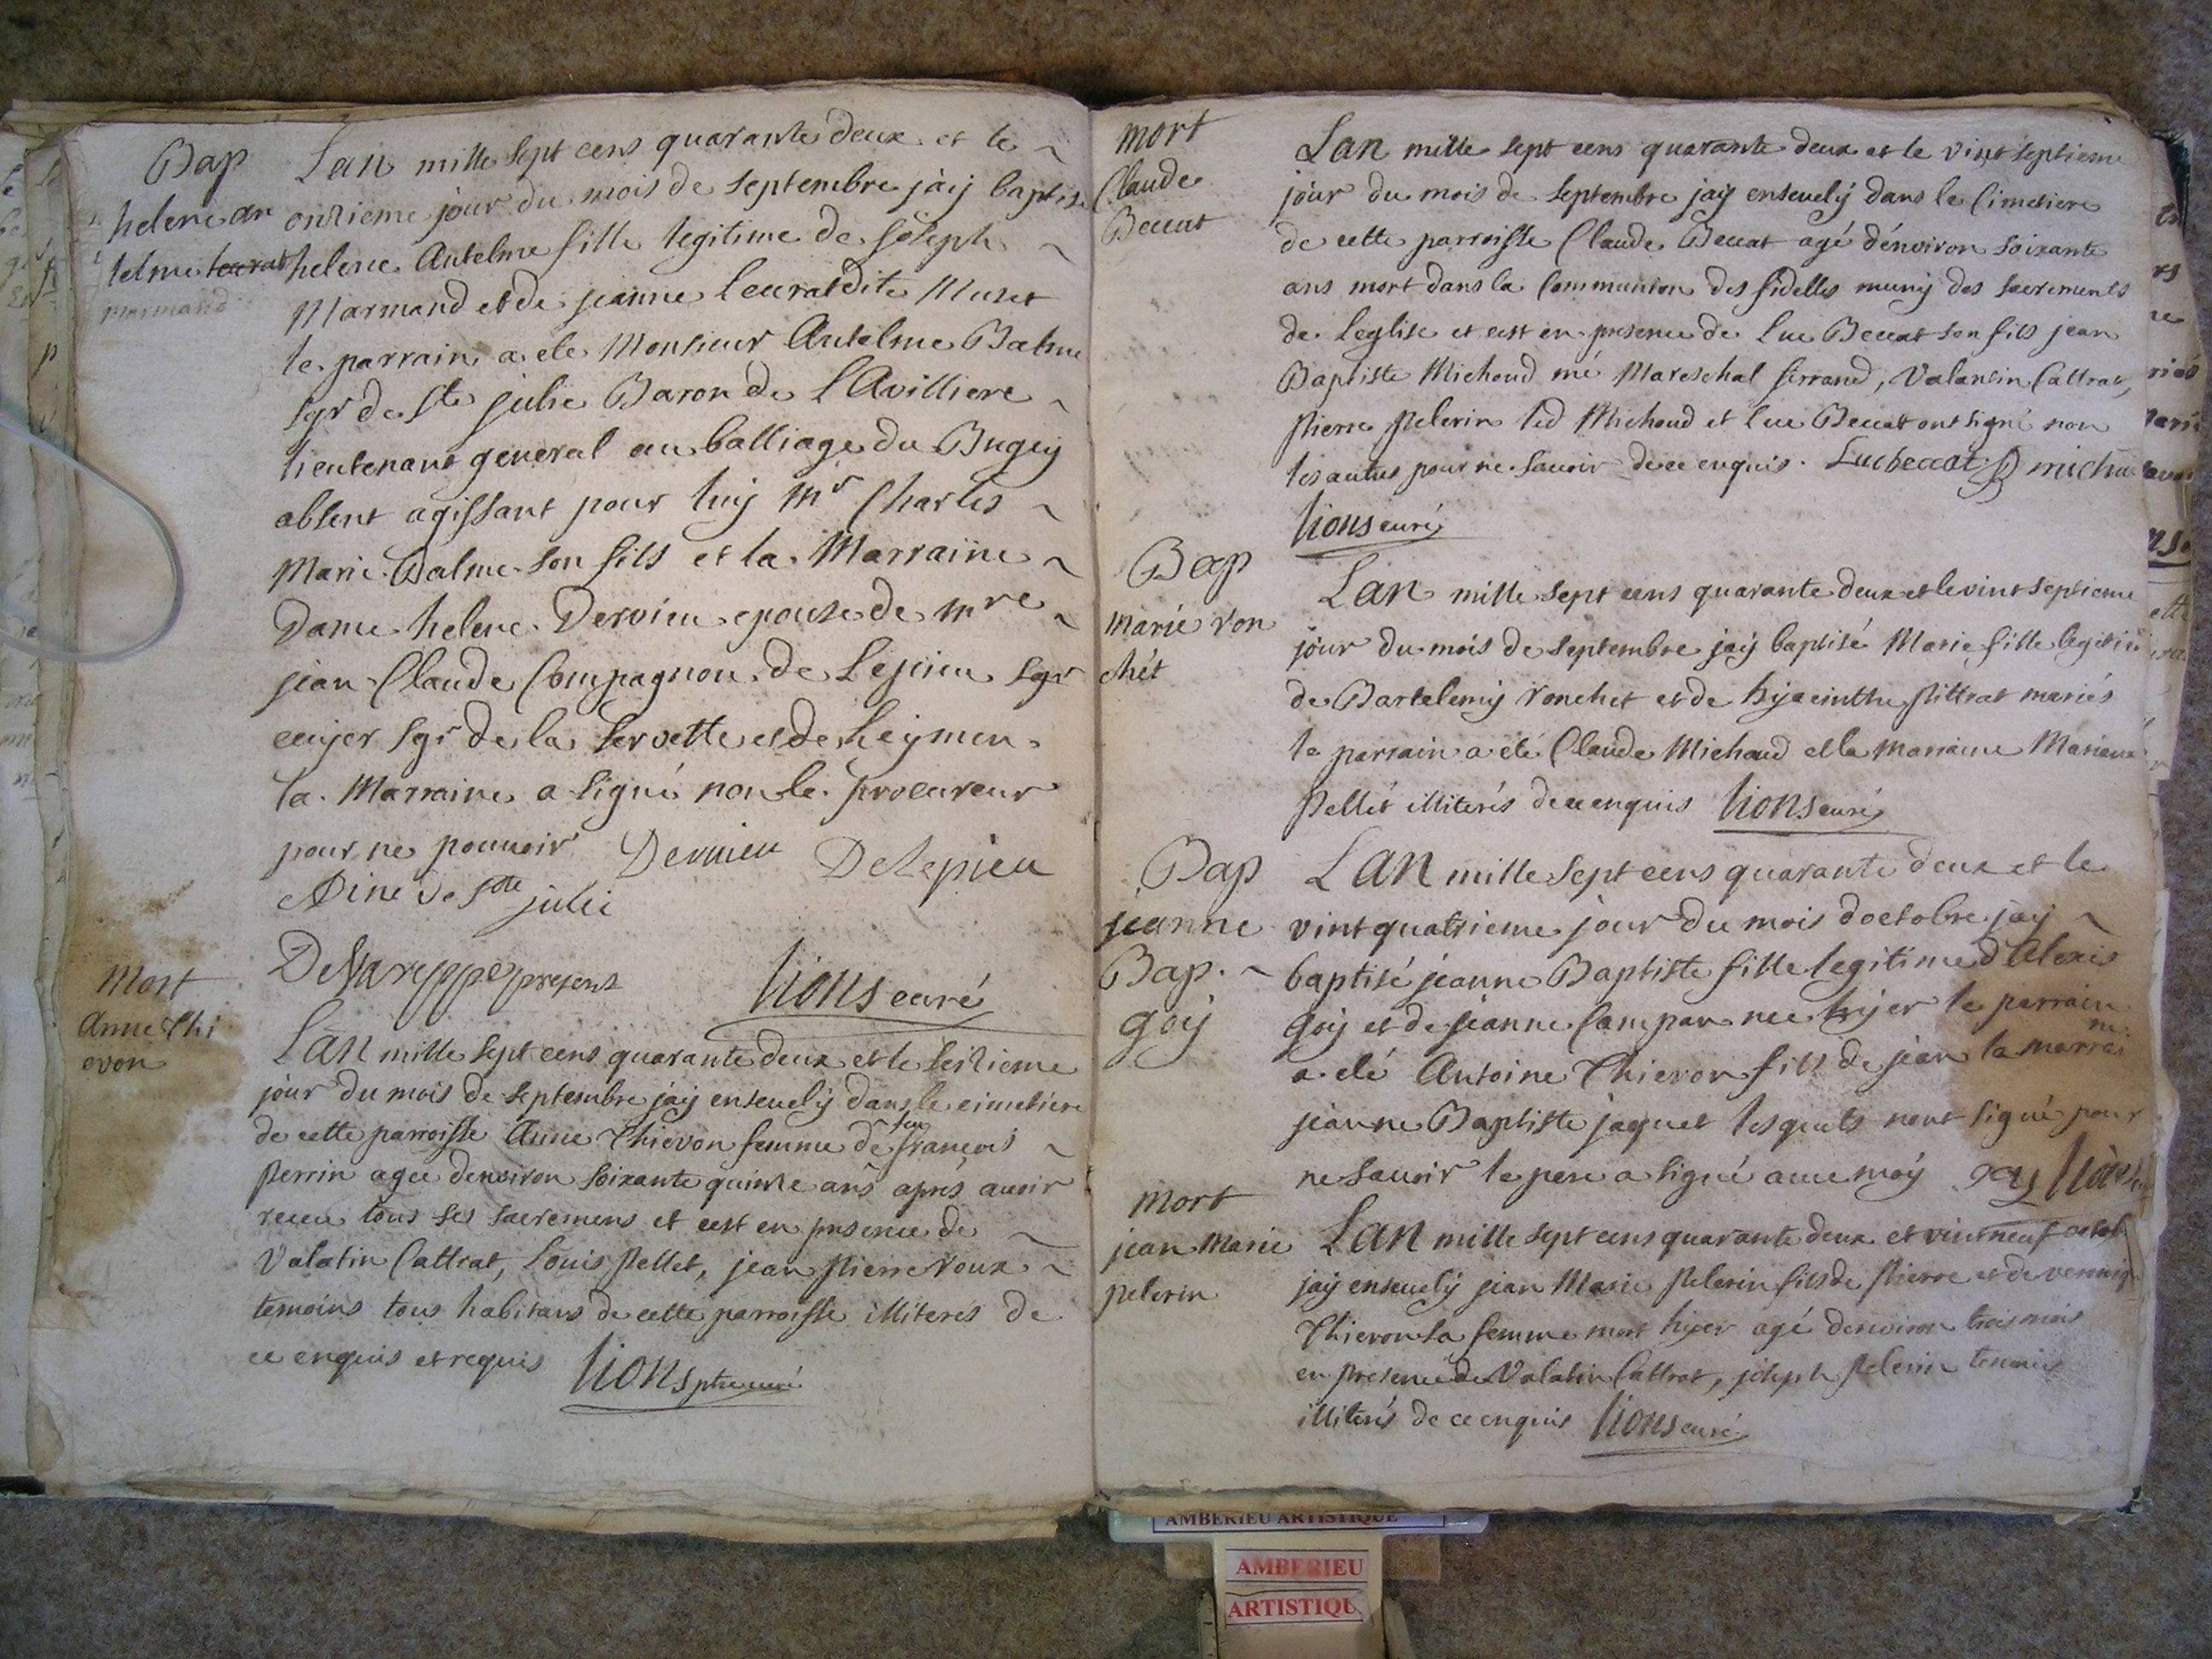 Bap
helene an
telme leurat
marmand
Lan mille sept cens quarante deux et le
onzieme jour du mois de septembre jaÿ baptisé
helene Antelme fille legitime de joseph
Marmand et de jeanne Leurat dite Muset
le parrain a ete Monsieur Antelme Balme
sgr de Ste julie Baron de L Avilliere
lieutenant general au balliage du Bugey
absent agissant pour luy Mr Charles
Marie Balme son fils et la Marraine
Dame helene Dervieu epouse de Mre
jean Claude Compagnon de Lepieu sgr
ecuyer sgr de la servette et de Leymen
la Marraine a signé non le procureur
pour ne pouvoir Dervieu DeLepieu
Aine de Ste julie
present lions curé
Mort
Anne Thi
evon
Lan mille sept cens quarante deux et le seizieme
jour du mois de septembre jaÿ ensevely dans le cimetiere
de cette parroisse Anne Thievon femme de feu françois
perrin agee denviron soixante quinze ans apres avoir
receu tous ses sacremens et cest en presence de
Valatin Cattrat, Louis pellet, jean pierre roux
temoins tous habitans de cette parroisse illiteres de
ce enquis et requis lions ptre curé
mort
Claude
Beccat
Lan mille sept cens quarante deux et le vint septieme
jour du mois de septembre jaÿ ensevelÿ dans le Cimetiere
de cette parroisse Claude Beccat agé dénviron soixante
ans mort dans la Communion des fidelles muny des sacrements
de Leglise et cest en presence de Luc Beccat son fils jean
Baptiste Michoud mé Mareschal ferrand, Valantin Cattrat,
pierre pelerin led Michoud et luc Beccat ont signé non
les autres pour ne savoir de ce enquis. Luc beccat B michu
lions curé
Bap
marie ron
chét
Lan mille sept cens quarante deux et le vint septieme
jour du mois de septembre jaÿ baptisé Marie fille legitime
de Bartelemy ronchet et de hyacinthe pittrat mariés
le parrain a été Claude Michaud et la marraine Mariane
pellét illiterés de ce enquis lions curé
Bap
jeanne
Bap.
goÿ
LAN mille sept cens quarante deux et le
vint quatrieme jour du mois doctobre jaÿ
baptisé jeanne Baptiste fille legitime d Alexis
goÿ et de jeanne Campan nee hyer le parrain
a eté Antoine Thievon fils de jean la marrai
ne
jeanne Baptiste jaquet lesquels nont signé pour
ne savoir le pere a signé avec moÿ goy lions
mort
jean Marie
pelerin
LAN mille sept cens quarante deux et vint neuf octob
jaÿ ensevely jean Marie pelerin fils de pierre et de
Thievon sa femme mort hyer agé denviron trois mois
en presence de Valatin Cattrat, joseph pelerin temoins
illiterés de ce enquis lions curé
AMBERIEU ARTISTIQUE
AMBERIEU
ARTISTIQU